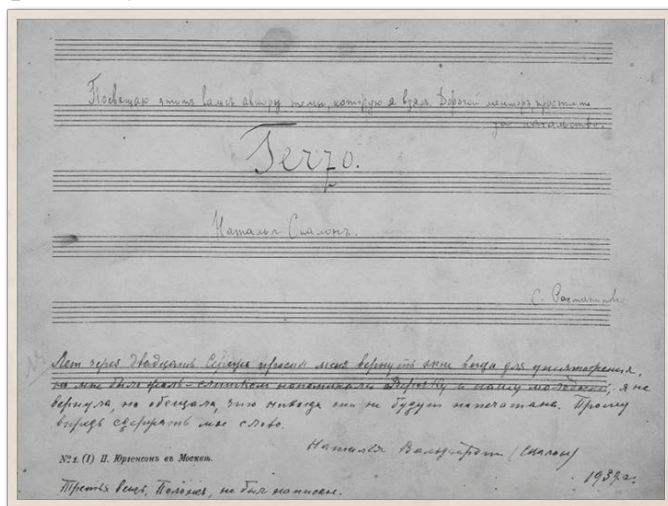 Посвящаю этотъ вальсъ автору темы, которую я взялъ. Дорогой менторъ, простите
за
Terzo.
Наталья Скалонъ.
С. Рахманиновъ
Лет через двадцать Сережа просил меня вернуть эти вещи для уничтожения,
но мне было жаль - слишком напоминали и нашу молодость, я не
вернула, но обещала, что никогда они не будут напечатаны. Прошу
сдержать мое слово.
Наталья Вальдгардт (Скалон)
1939 г.
№ 1. (I) П. Юргенсонъ въ Москвѣ.
Третья вещь, Полонез, не был написан.